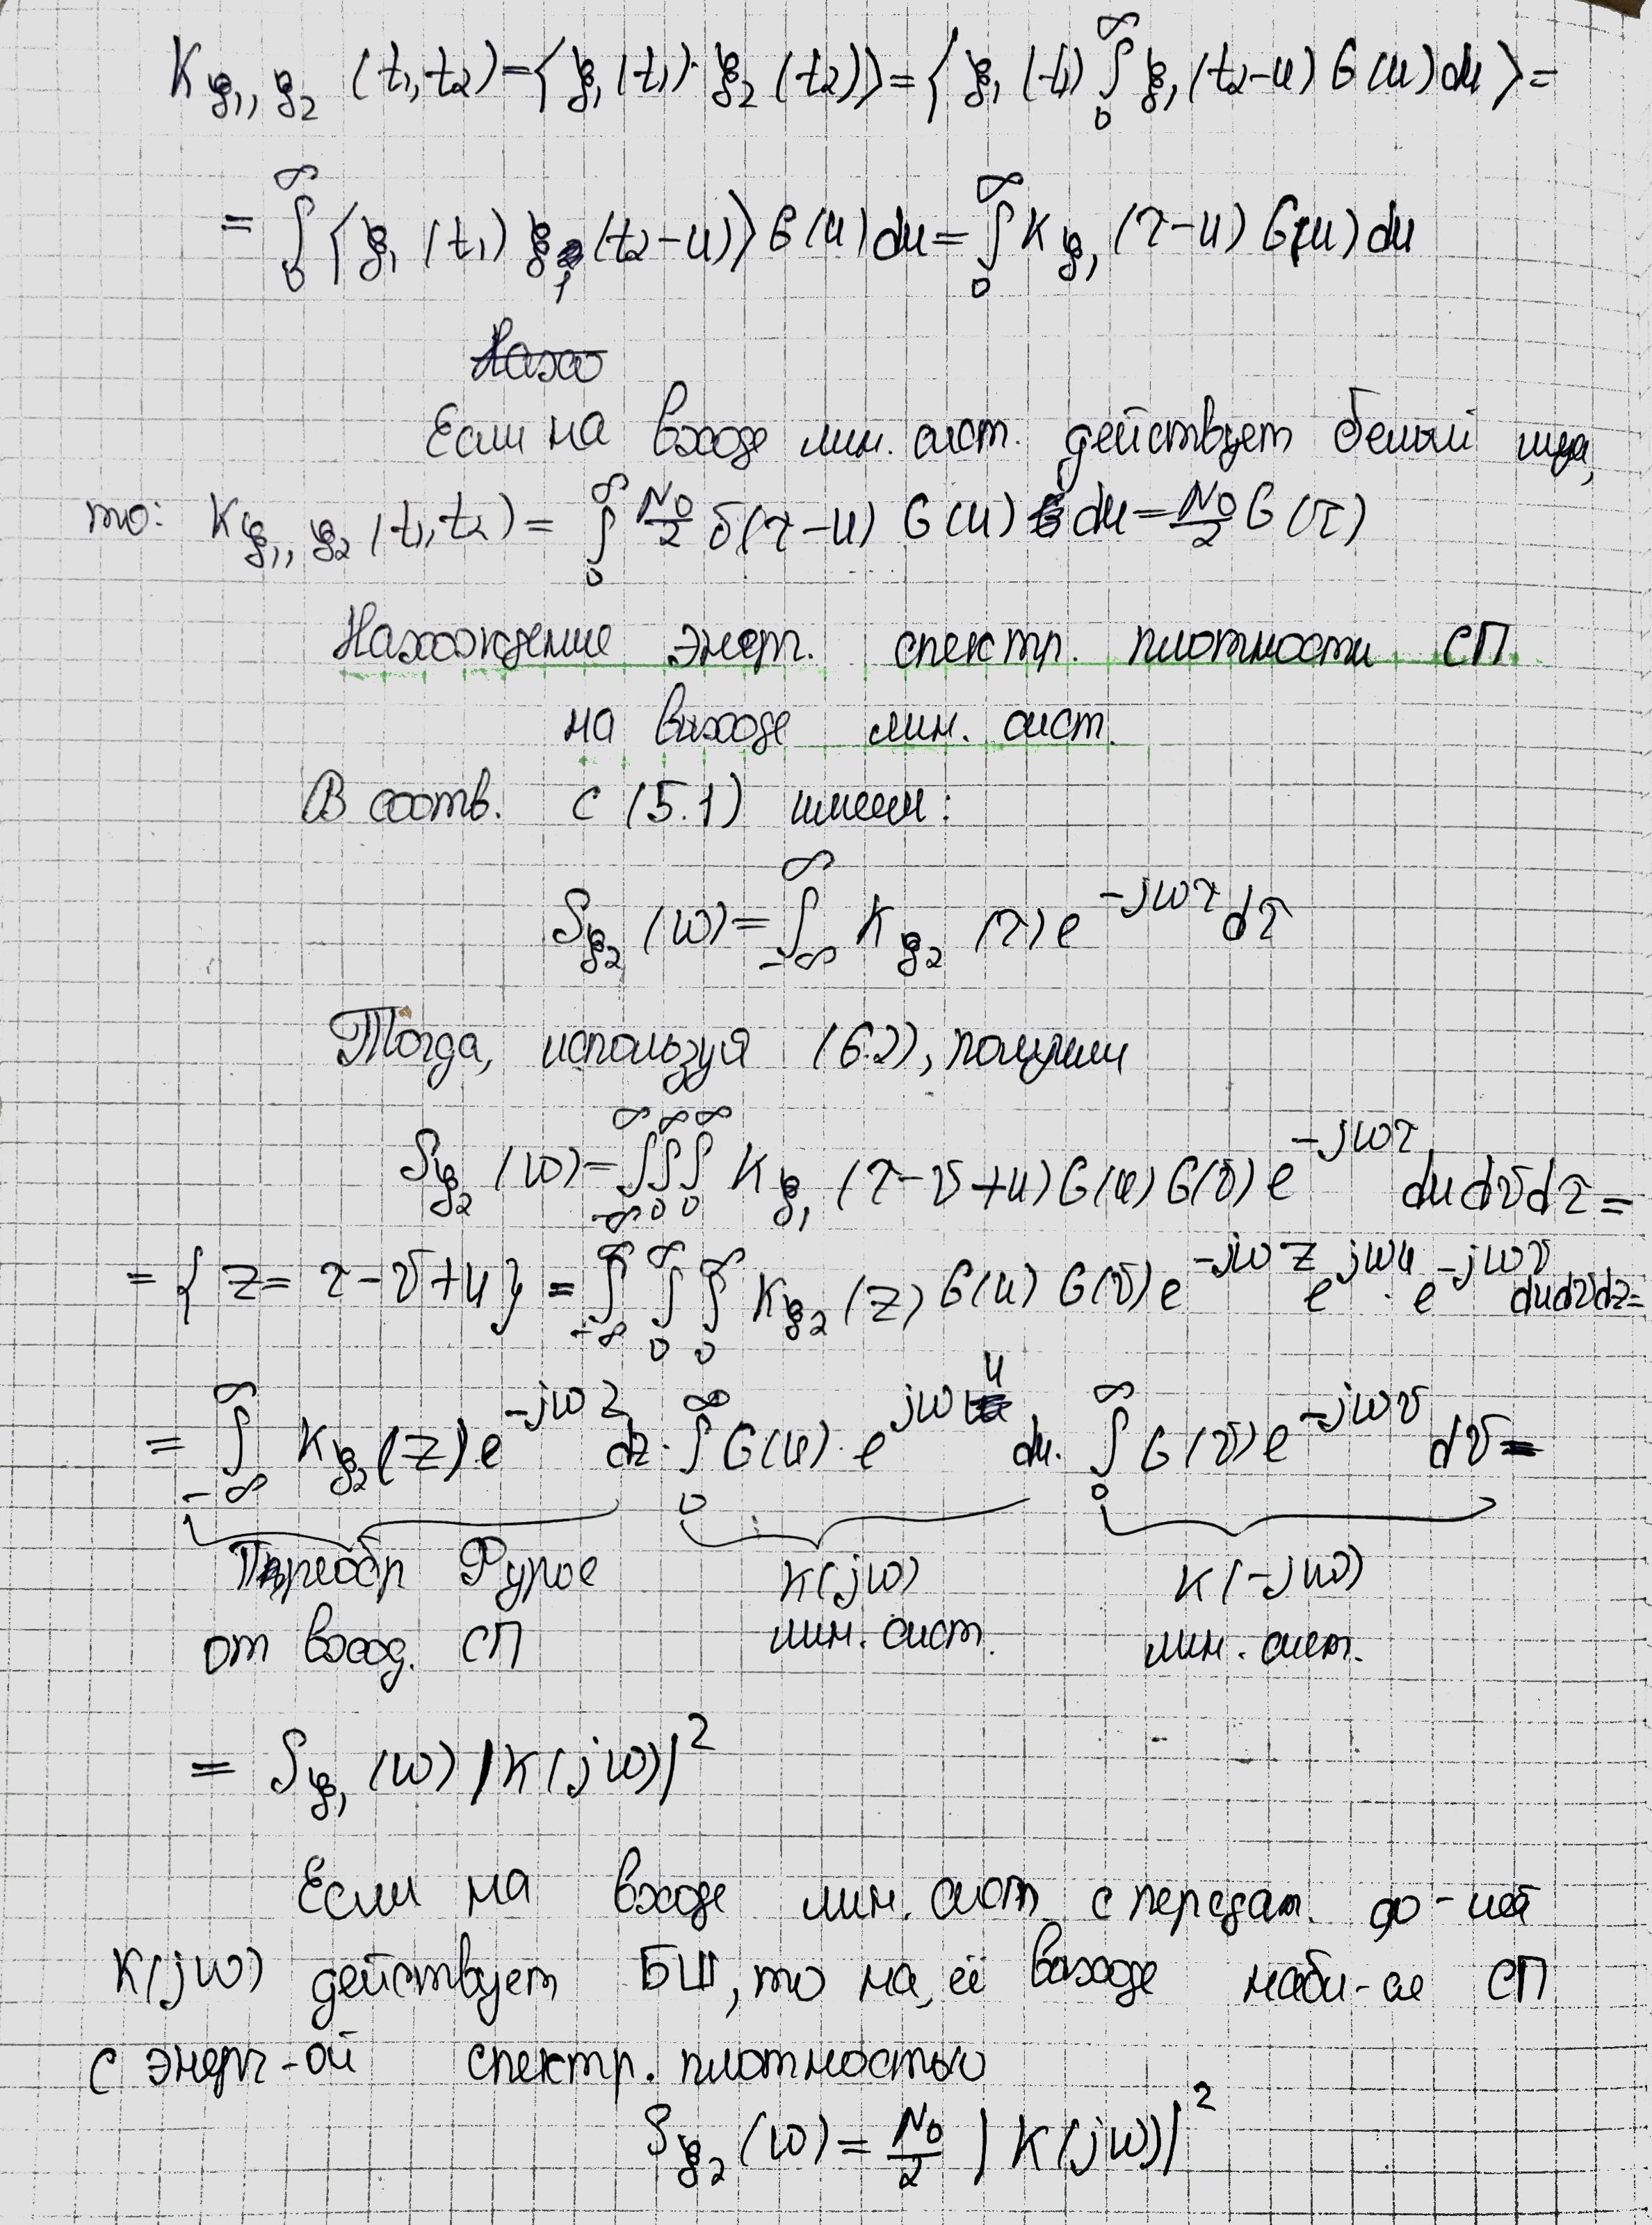 K_{ξ₁,ξ₂} (t₁,t₂) = ⟨ξ₁(t₁)·ξ₂(t₂)⟩ = ⟨ξ₁(t₁) ∫₀^∞ ξ₁(t₂-u) G(u) du⟩ =
= ∫₀^∞ ⟨ξ₁(t₁) ξ₁(t₂-u)⟩ G(u) du = ∫₀^∞ K_{ξ₁} (τ-u) G(u) du
Если на входе лин. сист. действует белый шум,
то: K_{ξ₁,ξ₂} (t₁,t₂) = ∫₀^∞ N₀/2 δ(τ-u) G(u) du = N₀/2 G(τ)
Нахождение энерг. спектр. плотности СП
на выходе лин. сист.
В соотв. с (5.1) имеем:
S_{ξ₂} (ω) = ∫_{-∞}^∞ K_{ξ₂} (τ) e^{-jωτ} dτ
Тогда, используя (6.2), получим
S_{ξ₂} (ω) = ∫_{-∞}^∞ ∫₀^∞ ∫₀^∞ K_{ξ₁} (τ-v+u) G(u) G(v) e^{-jωτ} du dv dτ =
= {z = τ-v+u} = ∫_{-∞}^∞ ∫₀^∞ ∫₀^∞ K_{ξ₂} (z) G(u) G(v) e^{-jωz} e^{jωu} · e^{-jωv} du dv dz =
= ∫_{-∞}^∞ K_{ξ₂}(z) · e^{-jωz} dz · ∫₀^∞ G(u) · e^{jωu} du · ∫₀^∞ G(v) e^{-jωv} dv =
Преобр Фурье K(jω) K(-jω)
от вход. СП лин. сист. лин. сист.
= S_{ξ₁} (ω) |K(jω)|²
Если на входе лин. сист с передат. ф-ией
K(jω) действует БШ, то на её выходе набл-ся СП
с энерг-ой спектр. плотностью
S_{ξ₂} (ω) = N₀/2 |K(jω)|²